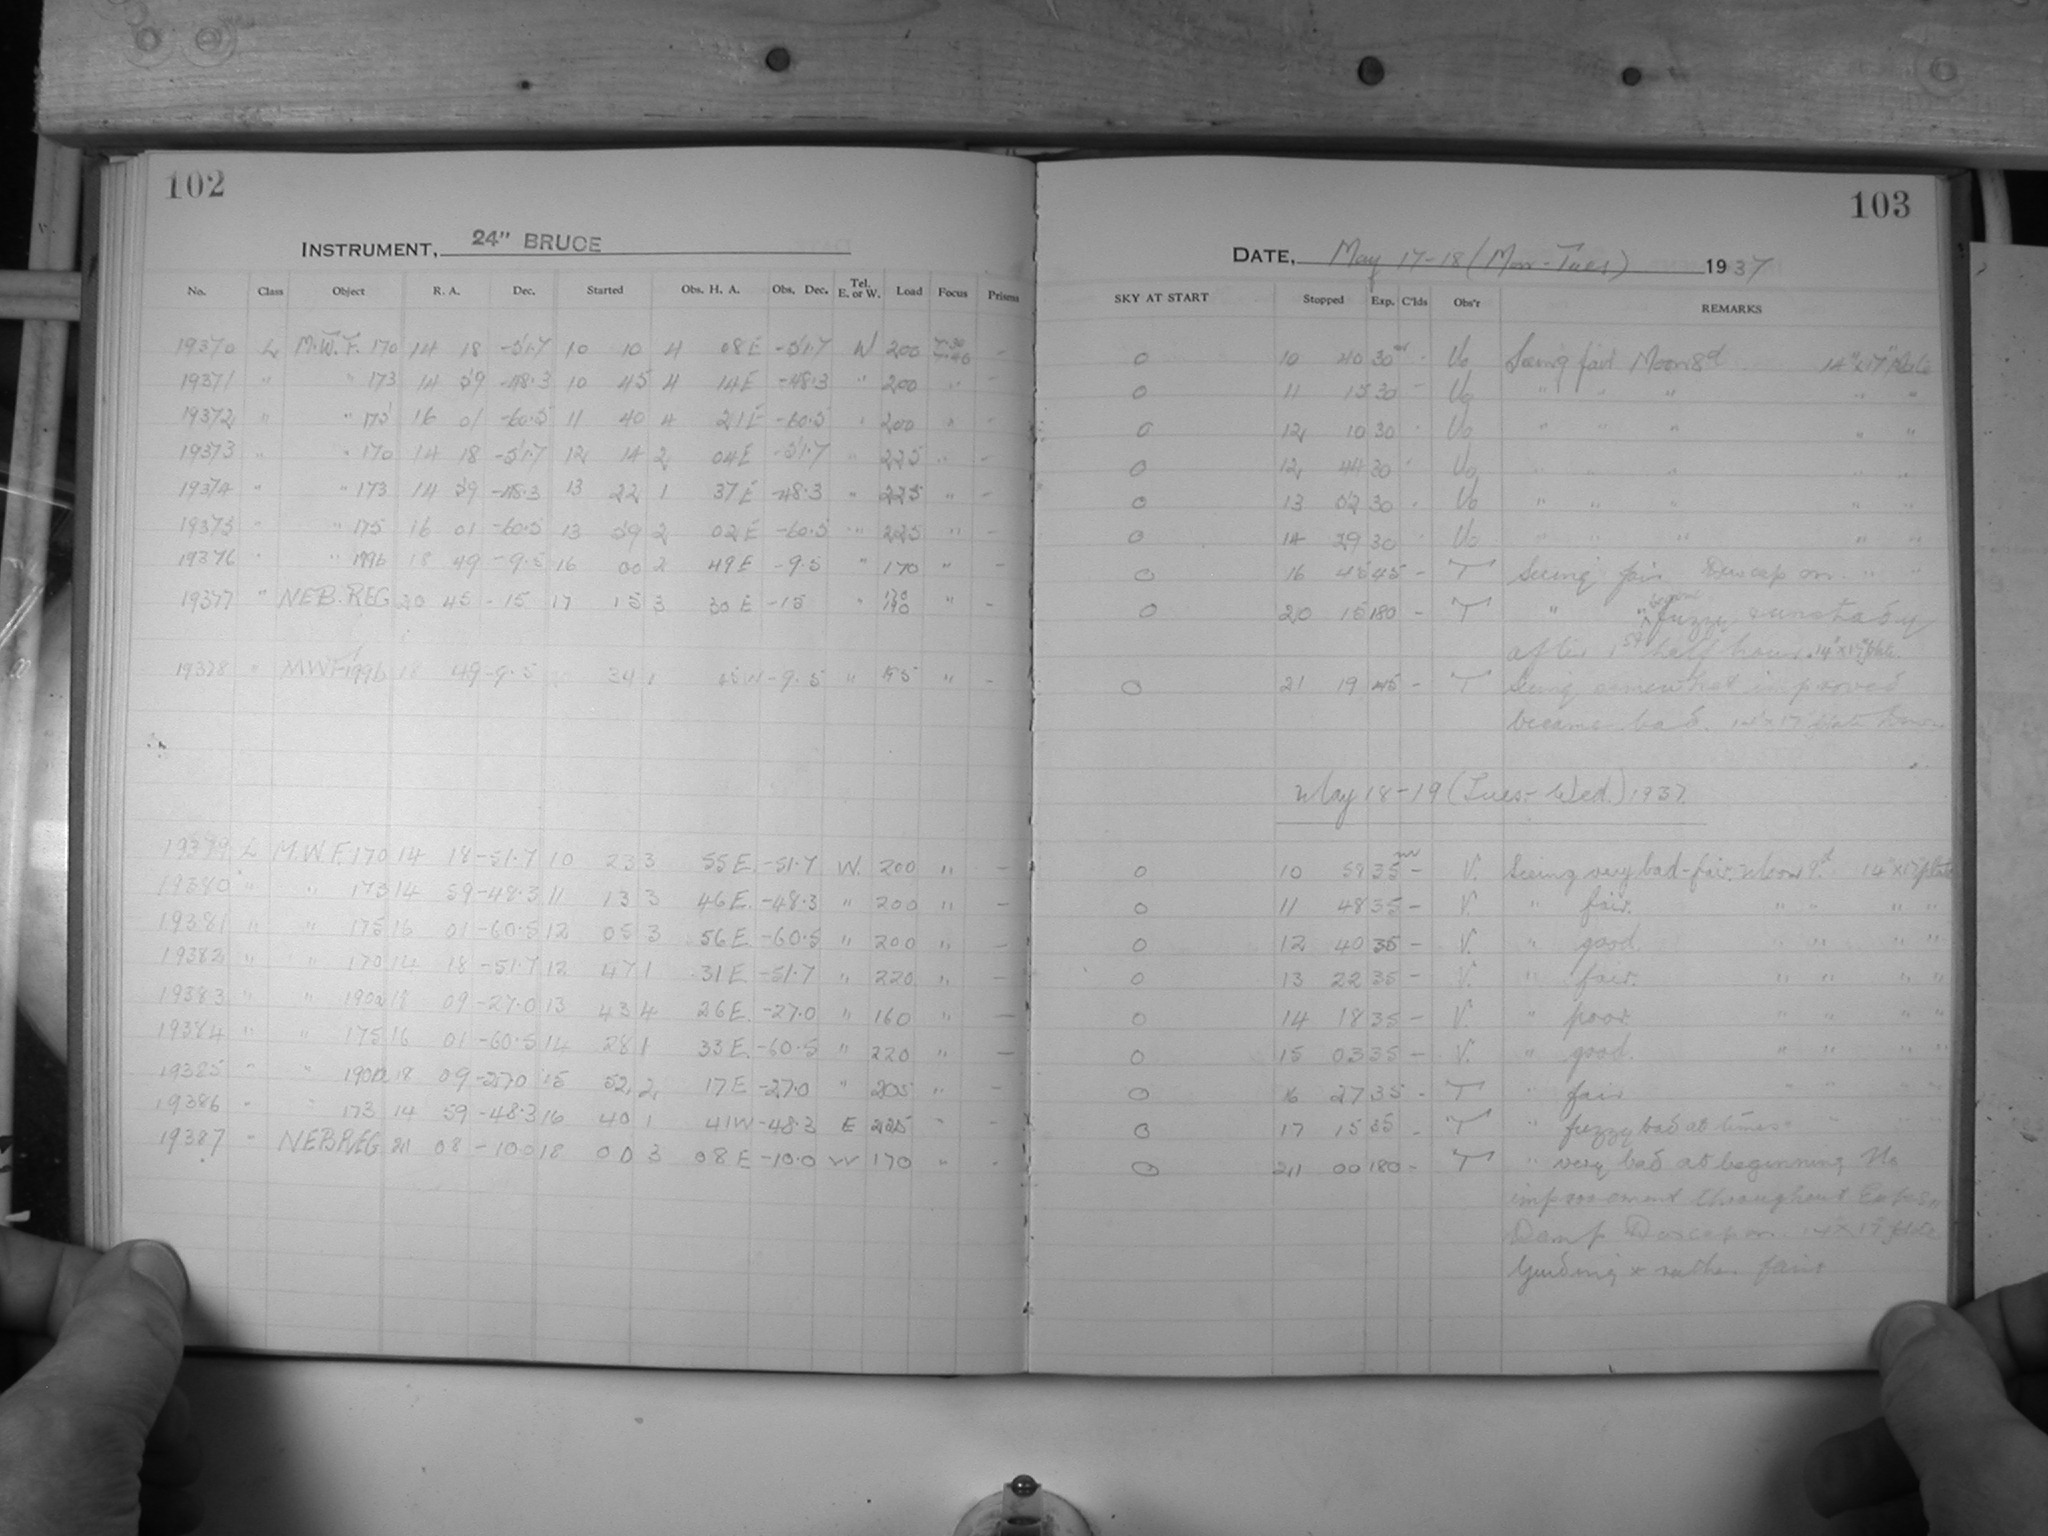 102
INSTRUMENT, 24" BRUCE
No. Class Object R. A. Dec. Started Obs. H. A. Obs. Dec. Tel. E. or W. Load Focus Prisms
19370 L M.W.F. 170 14 18 -51.7 10 10 4 08E -51.7 W 200 -
19371 " " 173 14 59 -48.3 10 45 4 14E -48.3 " 200 " -
19372 " " 175 16 01 -60.5 11 40 4 21E -60.5 " 200 " -
19373 " " 170 14 18 -51.7 12 14 2 04E -51.7 " 225 " -
19374 " " 173 14 59 -48.3 13 22 1 37E -48.3 " 225 " -
19375 " " 175 16 01 -60.5 13 59 2 02E -60.5 " 225 " -
19376 " " 199b 18 49 -9.5 16 00 2 49E -9.5 " 170 " -
19377 " NEB.REG 20 45 -15 17 15 3 30E -15 " " -
19378 " MWF199b 18 49 -9.5 34 1 W -9.5 " " -
19379 L M.W.F. 170 14 18 -51.7 10 23 3 55E. -51.7 W. 200 " -
19380 " " 173 14 59 -48.3 11 13 3 46E. -48.3 " 200 " -
19381 " " 175 16 01 -60.5 12 05 3 56E. -60.5 " 200 " -
19382 " " 170 14 18 -51.7 12 47 1 31E. -51.7 " 220 " -
19383 " " 190a 18 09 -27.0 13 43 4 26E. -27.0 " 160 " -
19384 " " 175 16 01 -60.5 14 28 1 33E. -60.5 " 220 " -
19385 " " 190a 18 09 -27.0 15 52 2 17E -27.0 " 205 " -
19386 " " 173 14 59 -48.3 16 40 1 41W -48.3 E 225 " -
19387 " NEB REG 21 08 -10.0 18 00 3 08E -10.0 W 170 " -
103
DATE, May 17-18 (Mon-Tues) 1937
SKY AT START Stopped Exp. C'lds Obs'r REMARKS
0 10 40 30m - Uo Seeing fair Moon 8d 14"x17" Plate
0 11 15 30 - Uo " " " " "
0 12 10 30 - Uo " " " " "
0 12 44 30 - Uo " " " " "
0 13 52 30 - Uo " " " " "
0 14 29 30 - Uo " " " " "
0 16 45 45 - T Seeing fair Dewcap on " "
0 20 15 180 - T " " fuzzy & unsteady
after 1st half hour. 14"x17" plate.
0 21 19 45 - T Seeing somewhat improved
became bad. 14"x17" plate
May 18-19 (Tues.- Wed.) 1937.
0 10 58 35m - V. Seeing very bad-fair. Moon 9d 14"x17" plate
0 11 48 35 - V. " fair. " " " "
0 12 40 35 - V. " good. " " " "
0 13 22 35 - V. " fair. " " " "
0 14 18 35 - V. " poor. " " " "
0 15 03 35 - V. " good. " " " "
0 16 27 35 - T " fair " " " "
0 17 15 35 - T " fuzzy bad at times
0 21 00 180 - T " very bad at beginning No
improvement throughout Expos.
Damp Dewcap on. 14"x17" plate
Guiding * rather faint